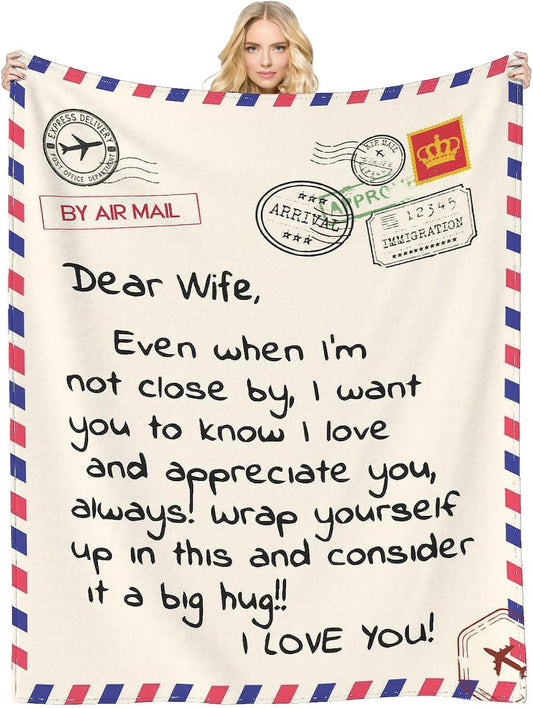 EXPRESS DELIVERY
POST OFFICE DEPARTMENT
AIR MAIL
BY AIR MAIL
ARRIVAL
12345
IMMIGRATION
Dear Wife,
Even when I'm
not close by, I want
you to know I love
and appreciate you,
always! Wrap yourself
up in this and consider
it a big hug!!
I LOVE YOU!